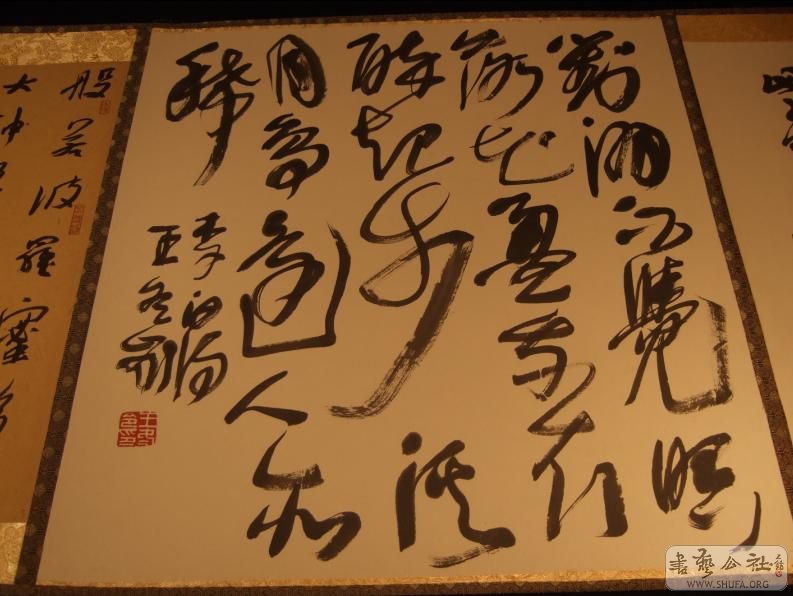 對酒不覺暝
落花盈我衣
醉起步溪
月鳥還人亦
稀
李白詩
王冬齡
般若波羅蜜多
大神
書藝公社
WWW.SHUFA.ORG